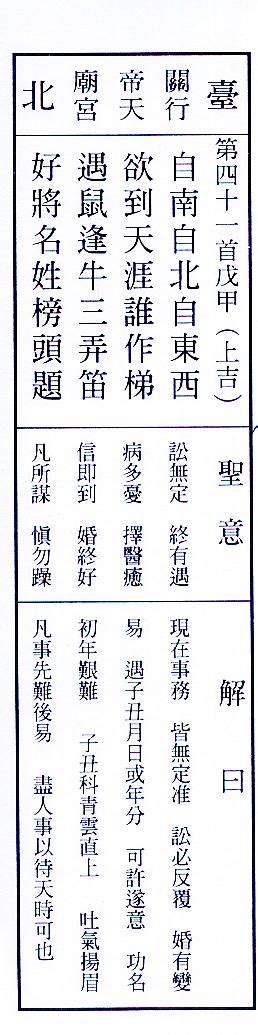 臺
關行
帝天
廟宮
北
第四十一首戊甲（上吉）
自南自北自東西
欲到天涯誰作梯
遇鼠逢牛三弄笛
好將名姓榜頭題
聖意
訟無定　終有遇
病多憂　擇醫癒
信即到　婚終好
凡所謀　慎勿躁
解曰
現在事務　皆無定准　訟必反覆　婚有變
易　遇子丑月日或年分　可許遂意　功名
初年艱難　子丑科青雲直上　吐氣揚眉
凡事先難後易　盡人事以待天時可也